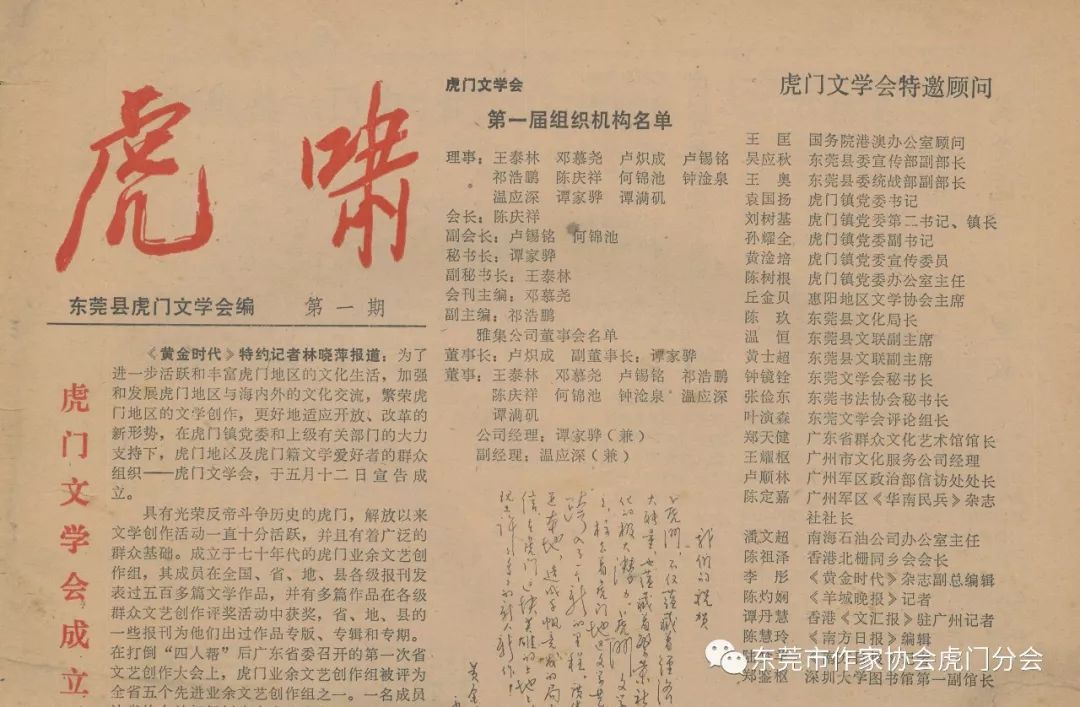 虎啸
东莞县虎门文学会编 第一期
虎门文学会成立
《黄金时代》特约记者林晓萍报道：为了
进一步活跃和丰富虎门地区的文化生活，加强
和发展虎门地区与海内外的文化交流，繁荣虎
门地区的文学创作，更好地适应开放、改革的
新形势，在虎门镇党委和上级有关部门的大力
支持下，虎门地区及虎门籍文学爱好者的群众
组织——虎门文学会，于五月十二日宣告成
立。
具有光荣反帝斗争历史的虎门，解放以来
文学创作活动一直十分活跃，并且有着广泛的
群众基础。成立于七十年代的虎门业余文艺创
作组，其成员在全国、省、地、县各级报刊发
表过五百多篇文学作品，并有多篇作品在各级
群众文艺创作评奖活动中获奖，省、地、县的
一些报刊为他们出过作品专版、专辑和专期。
在打倒“四人帮”后广东省委召开的第一次省
文艺创作大会上，虎门业余文艺创作组被评为
全省五个先进业余文艺创作组之一。一名成员
虎门文学会
第一届组织机构名单
理事：王泰林 邓慕尧 卢炽成 卢锡铭
祁浩鹏 陈庆祥 何锦池 钟淦泉
温应深 谭家骅 谭满矶
会长：陈庆祥
副会长：卢锡铭 何锦池
秘书长：谭家骅
副秘书长：王泰林
会刊主编：邓慕尧
副主编：祁浩鹏
雅集公司董事会名单
董事长：卢炽成 副董事长：谭家骅
董事：王泰林 邓慕尧 卢锡铭 祁浩鹏
陈庆祥 何锦池 钟淦泉 温应深
谭满矶
公司经理：谭家骅（兼）
副经理：温应深（兼）
我们的祝贺
虎门文学会特邀顾问
王匡 国务院港澳办公室顾问
吴应秋 东莞县委宣传部副部长
王奥 东莞县委统战部副部长
袁国扬 虎门镇党委书记
刘树基 虎门镇党委第二书记、镇长
孙耀全 虎门镇党委副书记
黄淦培 虎门镇党委宣传委员
陈树根 虎门镇党委办公室主任
丘金贝 惠阳地区文学协会主席
陈玖 东莞县文化局长
温恒 东莞县文联副主席
黄士超 东莞县文联副主席
钟镜铨 东莞文学会秘书长
张俭东 东莞书法协会秘书长
叶演森 东莞文学会评论组长
郑天健 广东省群众文化艺术馆馆长
王耀枢 广州市文化服务公司经理
卢顺林 广州军区政治部信访处处长
陈定嘉 广州军区《华南民兵》杂志
社社长
潘文超 南海石油公司办公室主任
陈祖泽 香港北栅同乡会会长
李彤 《黄金时代》杂志副总编辑
陈灼娴 《羊城晚报》记者
谭丹慧 香港《文汇报》驻广州记者
陈慧玲 《南方日报》编辑
郑鉴枢 深圳大学图书馆第一副馆长
东莞市作家协会虎门分会